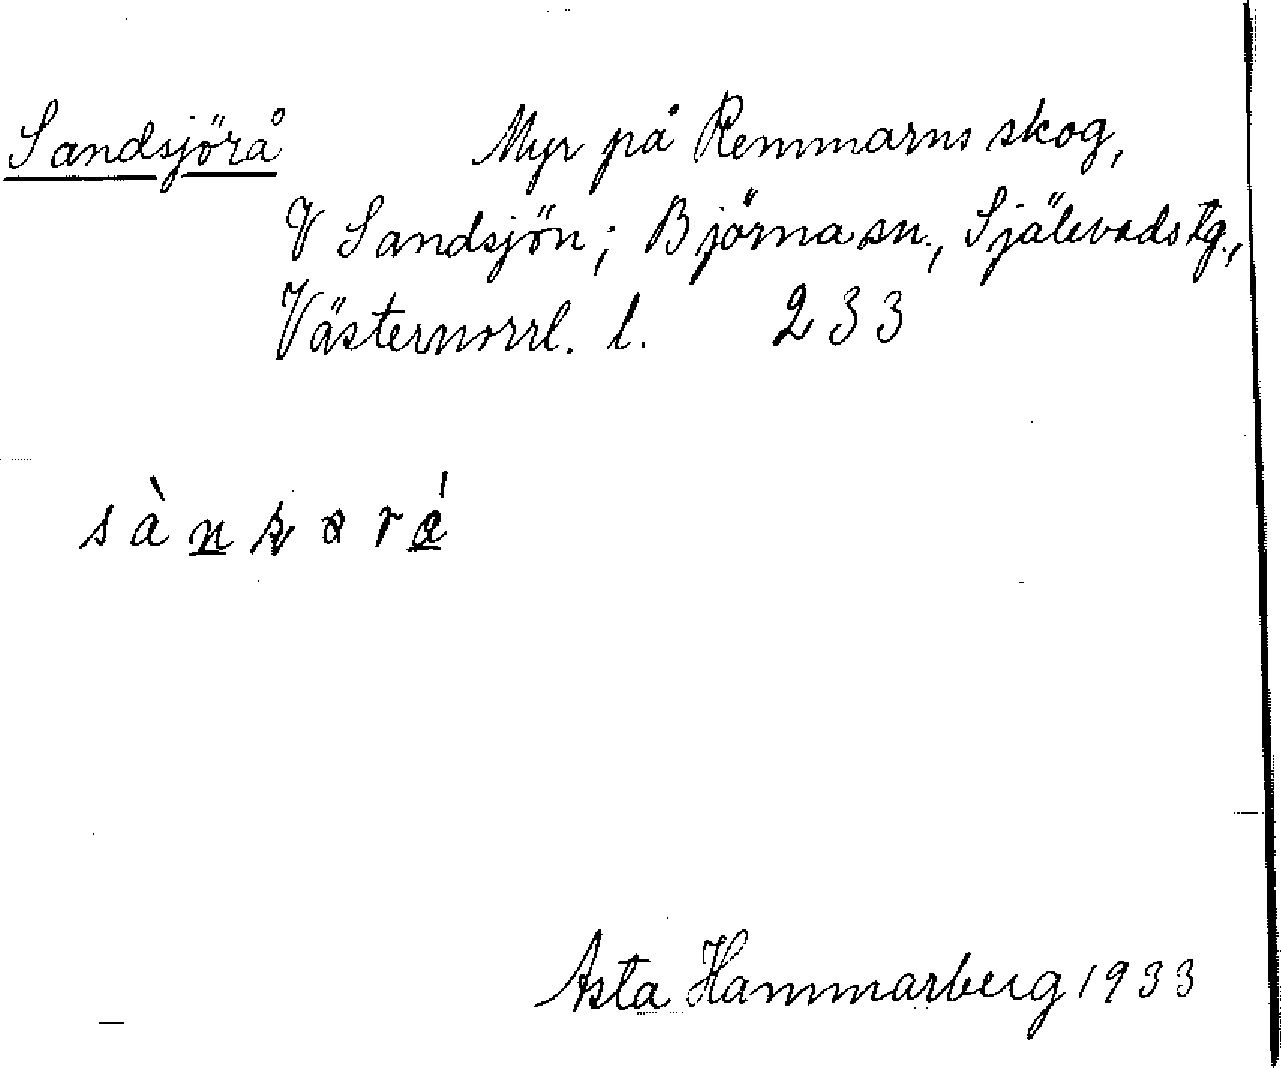 Sandsjörå Myr på Remmarns skog,
V Sandsjön; Björna sn., Själevads tg.,
Västernorrl. l. 233
Asta Hammarberg 1933